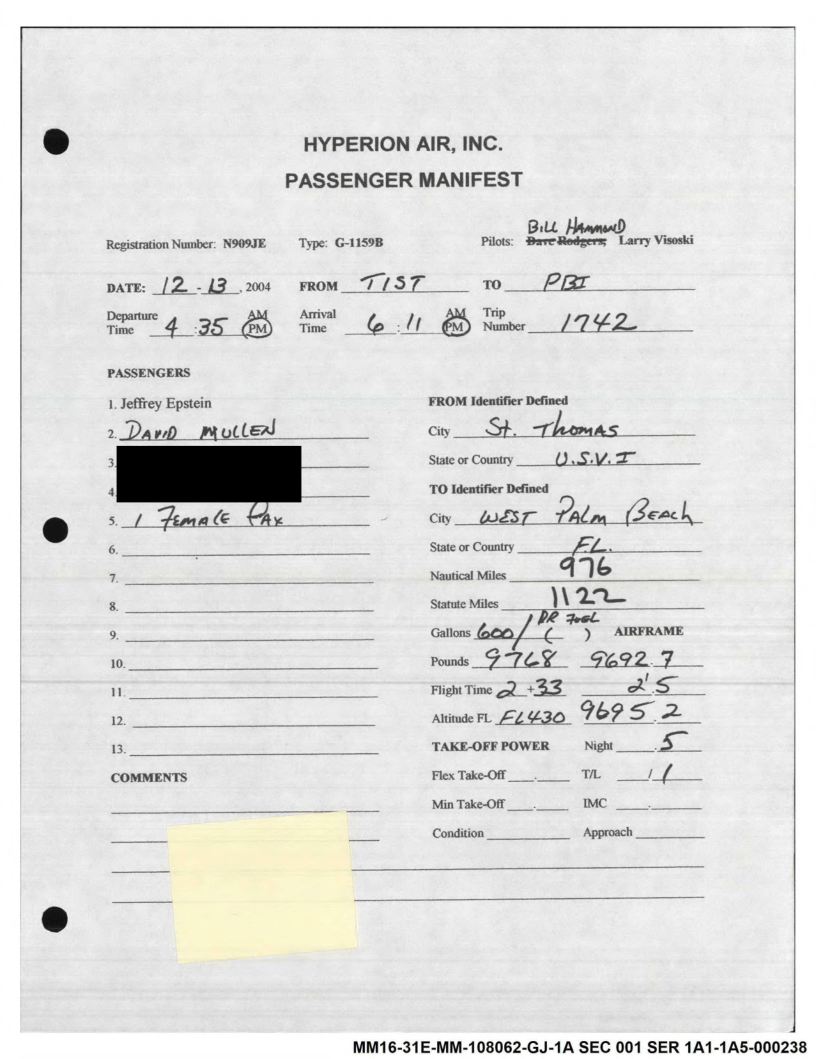 HYPERION AIR, INC.
PASSENGER MANIFEST
BILL HAMMOND
Registration Number: N909JE Type: G-1159B Pilots: Dave Rodgers, Larry Visoski
DATE: 12 - 13, 2004 FROM TIST TO PBI
Departure Time 4 :35 AM PM Arrival Time 6 :11 AM PM Trip Number 1742
PASSENGERS
1. Jeffrey Epstein
2. DAVID MULLEN
3.
4.
5. 1 FEMALE PAX
6.
7.
8.
9.
10.
11.
12.
13.
COMMENTS
FROM Identifier Defined
City St. THOMAS
State or Country U.S.V.I
TO Identifier Defined
City WEST PALM BEACH
State or Country FL.
Nautical Miles 976
Statute Miles 1122
DR FUEL
Gallons 600/ ( ) AIRFRAME
Pounds 9768 9692.7
Flight Time 2 +33 2.5
Altitude FL FL430 9695.2
TAKE-OFF POWER Night .5
Flex Take-Off . T/L / 1
Min Take-Off . IMC .
Condition Approach
MM16-31E-MM-108062-GJ-1A SEC 001 SER 1A1-1A5-000238